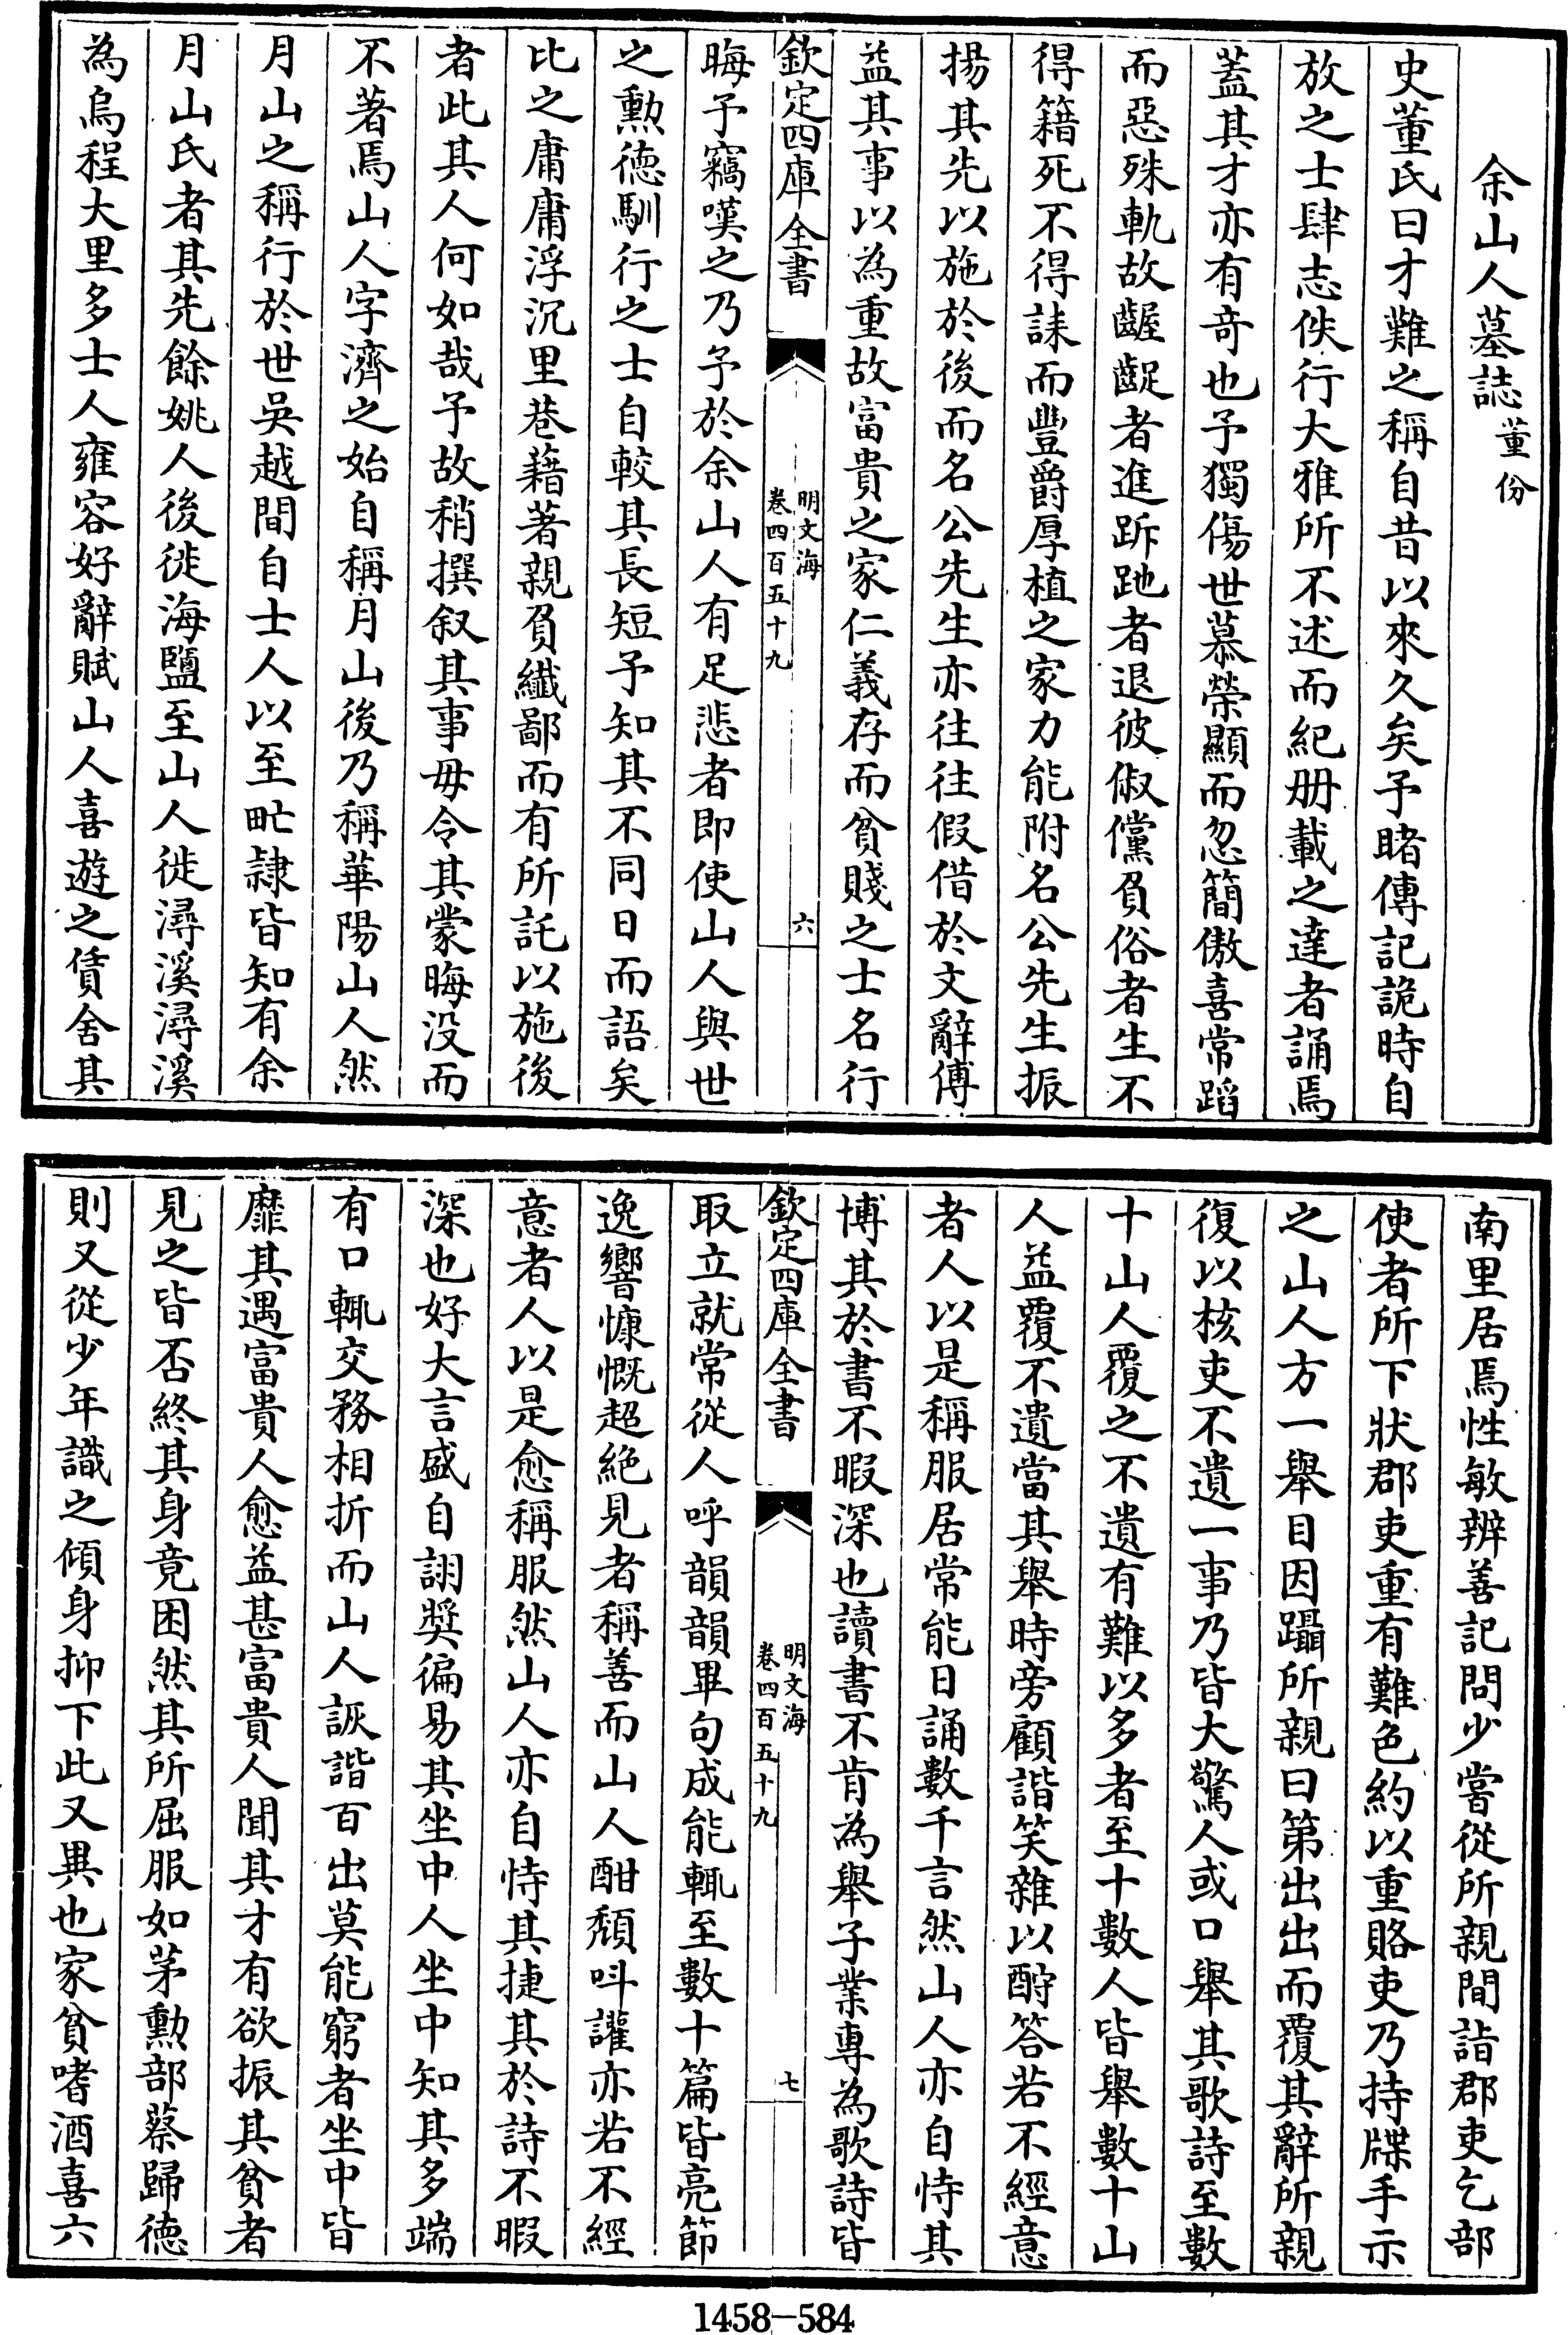 余山人墓誌董份
史董氏曰才難之稱自昔以來久矣予睹傳記詭時自
放之士肆志佚行大雅所不述而紀册載之達者誦焉
蓋其才亦有奇也予獨傷世慕榮顯而忽簡傲喜常蹈
而惡殊軌故齷齪者進跅跑者退彼俶儻負俗者生不
得籍死不得誄而豐爵厚植之家力能附名公先生振
揚其先以施於後而名公先生亦往往假借於文辭傅
益其事以為重故富貴之家仁義存而貧賤之士名行
欽定四庫全書
明文海
卷四百五十九
六
晦予竊嘆之乃予於余山人有足悲者即使山人與世
之勳德馴行之士自較其長短予知其不同日而語矣
比之庸庸浮沉里巷藉著親負纖鄙而有所託以施後
者此其人何如哉予故稍撰叙其事毋令其蒙晦没而
不著焉山人字濟之始自稱月山後乃稱華陽山人然
月山之稱行於世吳越間自士人以至甿隷皆知有余
月山氏者其先餘姚人後徙海鹽至山人徙潯溪潯溪
為烏程大里多士人雍容好辭賦山人喜遊之賃舍其
南里居焉性敏辨善記問少嘗從所親間詣郡吏乞部
使者所下狀郡吏重有難色約以重賂吏乃持牒手示
之山人方一舉目因躡所親曰第出出而覆其辭所親
復以核吏不遺一事乃皆大驚人或口舉其歌詩至數
十山人覆之不遺有難以多者至十數人皆舉數十山
人益覆不遺當其舉時旁顧諧笑雜以酧答若不經意
者人以是稱服居常能日誦數千言然山人亦自恃其
博其於書不暇深也讀書不肯為舉子業專為歌詩皆
欽定四庫全書
明文海
卷四百五十九
七
取立就常從人呼韻韻畢句成能輒至數十篇皆亮節
逸響慷慨超絶見者稱善而山人酣頽呌讙亦若不經
意者人以是愈稱服然山人亦自恃其捷其於詩不暇
深也好大言盛自詡獎徧易其坐中人坐中知其多端
有口輒交務相折而山人詼諧百出莫能窮者坐中皆
靡其遇富貴人愈益甚富貴人聞其才有欲振其貧者
見之皆否終其身竟困然其所屈服如茅勳部蔡歸德
則又從少年識之傾身抑下此又異也家貧嗜酒喜六
1458-584